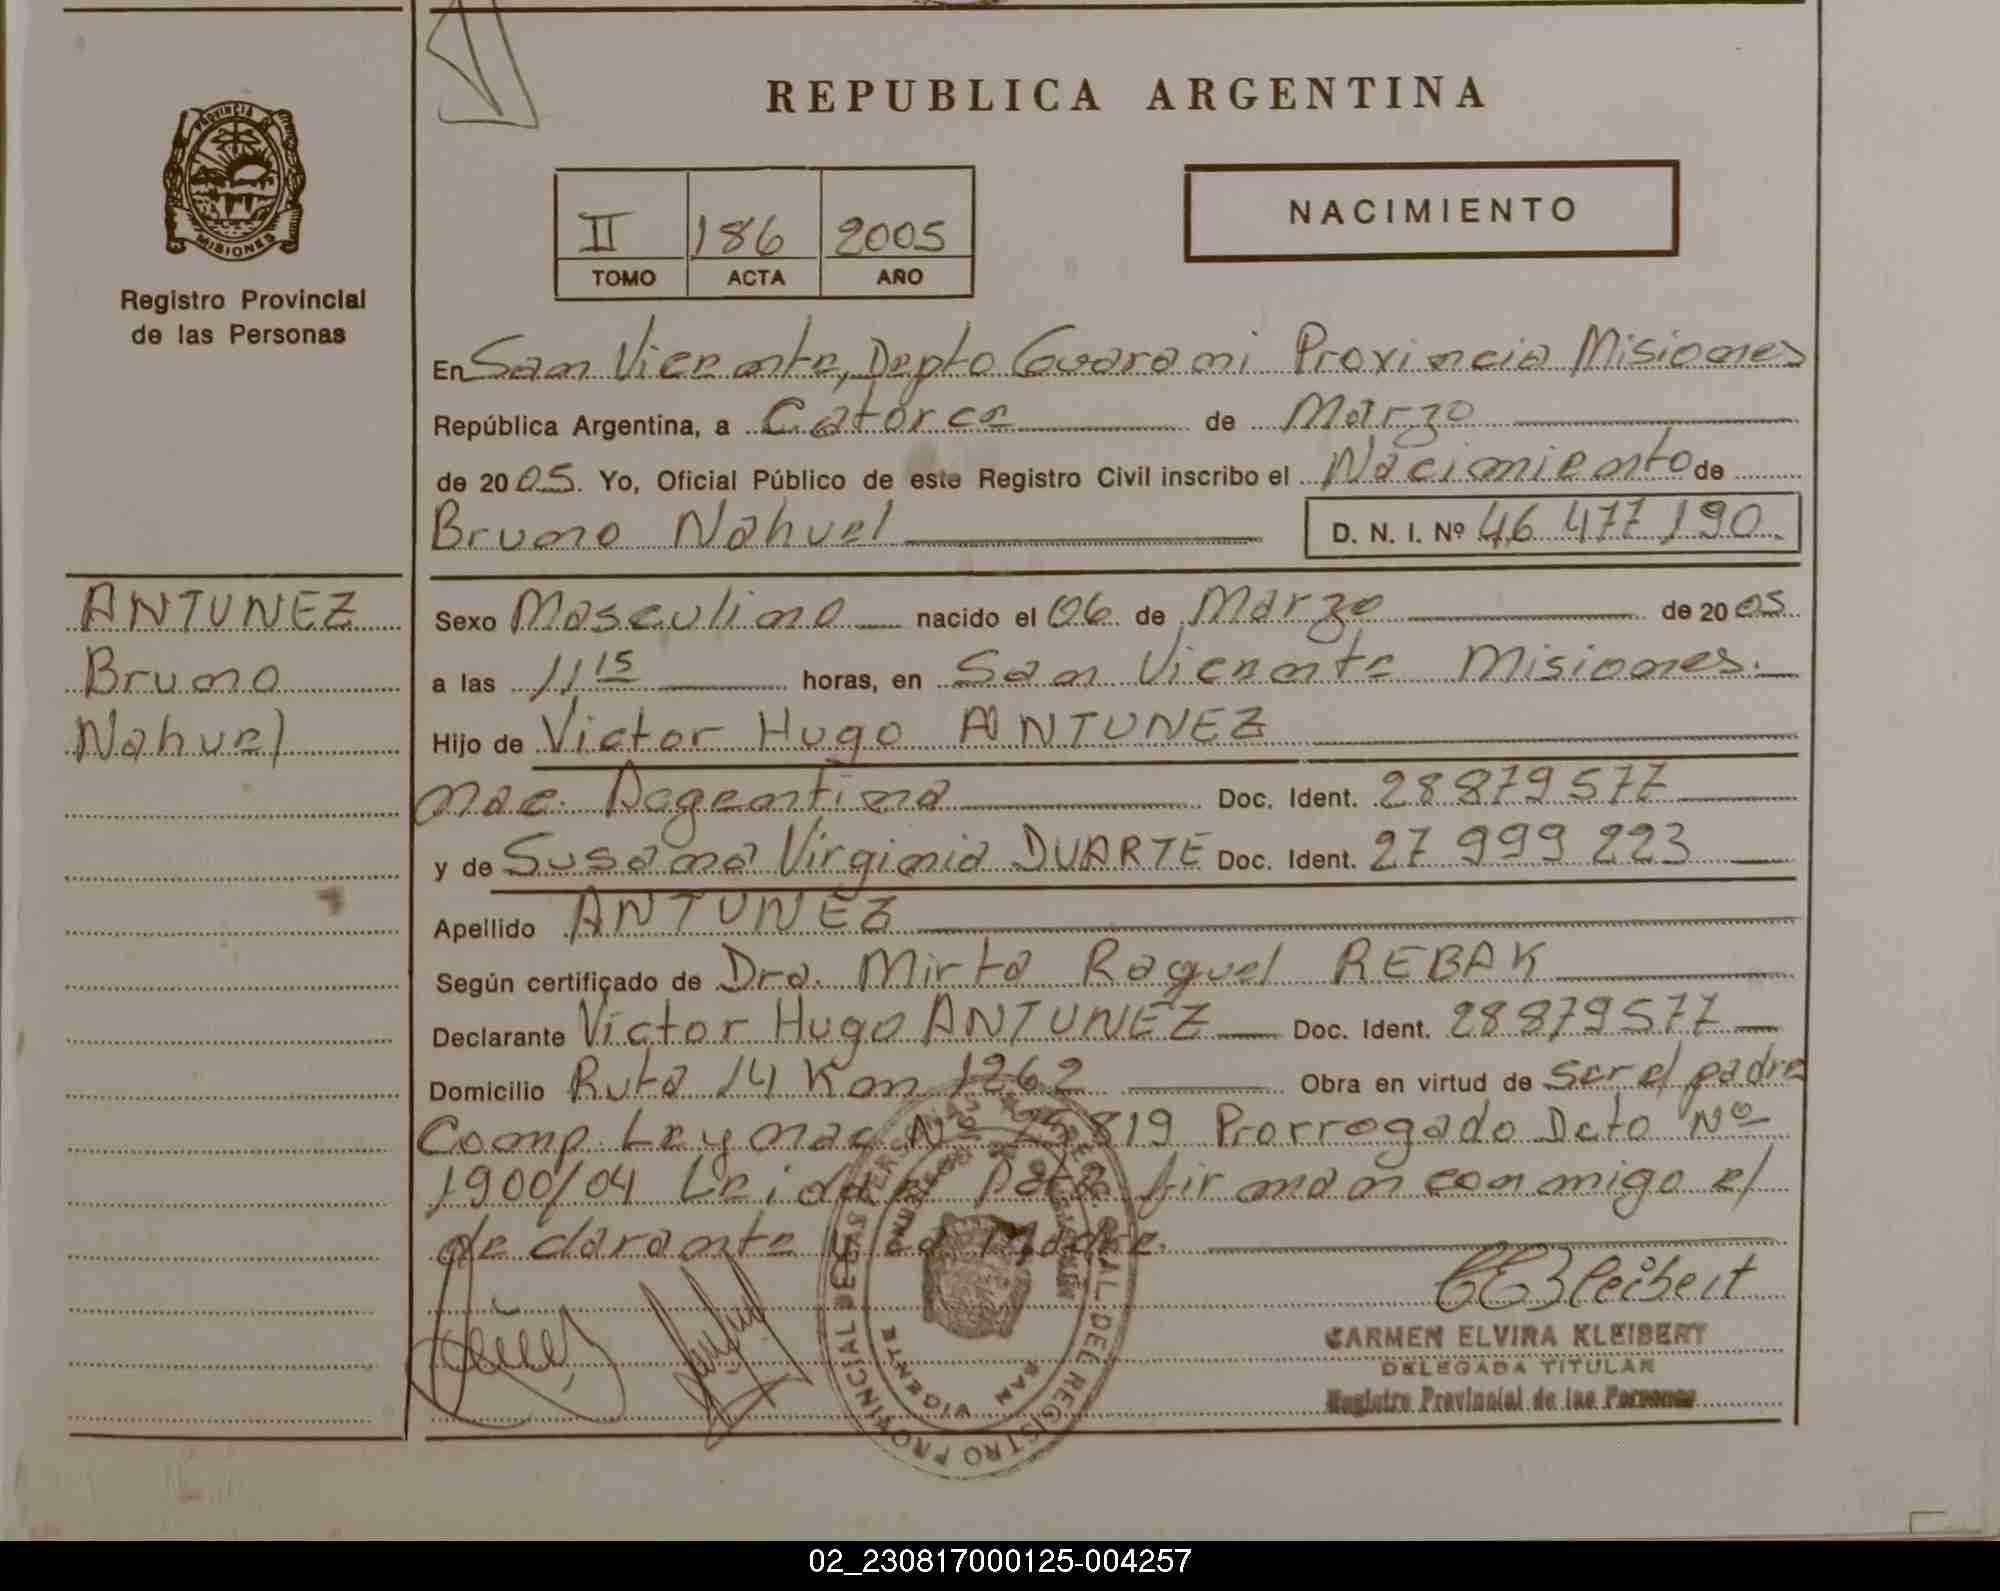 REPUBLICA ARGENTINA
PROVINCIA DE MISIONES
Registro Provincial
de las Personas
II 186 2005
TOMO ACTA AÑO
NACIMIENTO
En San Vicente, Depto Guarani Provincia Misiones
República Argentina, a Catorce de Marzo
de 2005. Yo, Oficial Público de este Registro Civil inscribo el Nacimiento de
Bruno Nahuel D. N. I. Nº 46 477 190.
ANTUNEZ
Bruno
Nahuel
Sexo Masculino nacido el 06 de Marzo de 2005
a las 11 15 horas, en San Vicente Misiones.
Hijo de Victor Hugo ANTUNEZ
nac. Argentina Doc. Ident. 28 879 577
y de Susana Virginia DUARTE Doc. Ident. 27 999 223
Apellido ANTUNEZ
Según certificado de Dra. Mirta Raquel REBAK
Declarante Victor Hugo ANTUNEZ Doc. Ident. 28 879 577
Domicilio Ruta 14 Km 1262 Obra en virtud de ser el padre
Comp. Ley nac Nº 25 819 Prorrogado Dcto Nº
1900/04 Leida el Acta firman conmigo el
declarante y la Madre.
CARMEN ELVIRA KLEIBERT
DELEGADA TITULAR
Registro Provincial de las Personas
REGISTRO PROVINCIAL DE LAS PERSONAS
SAN VICENTE
02_230817000125-004257